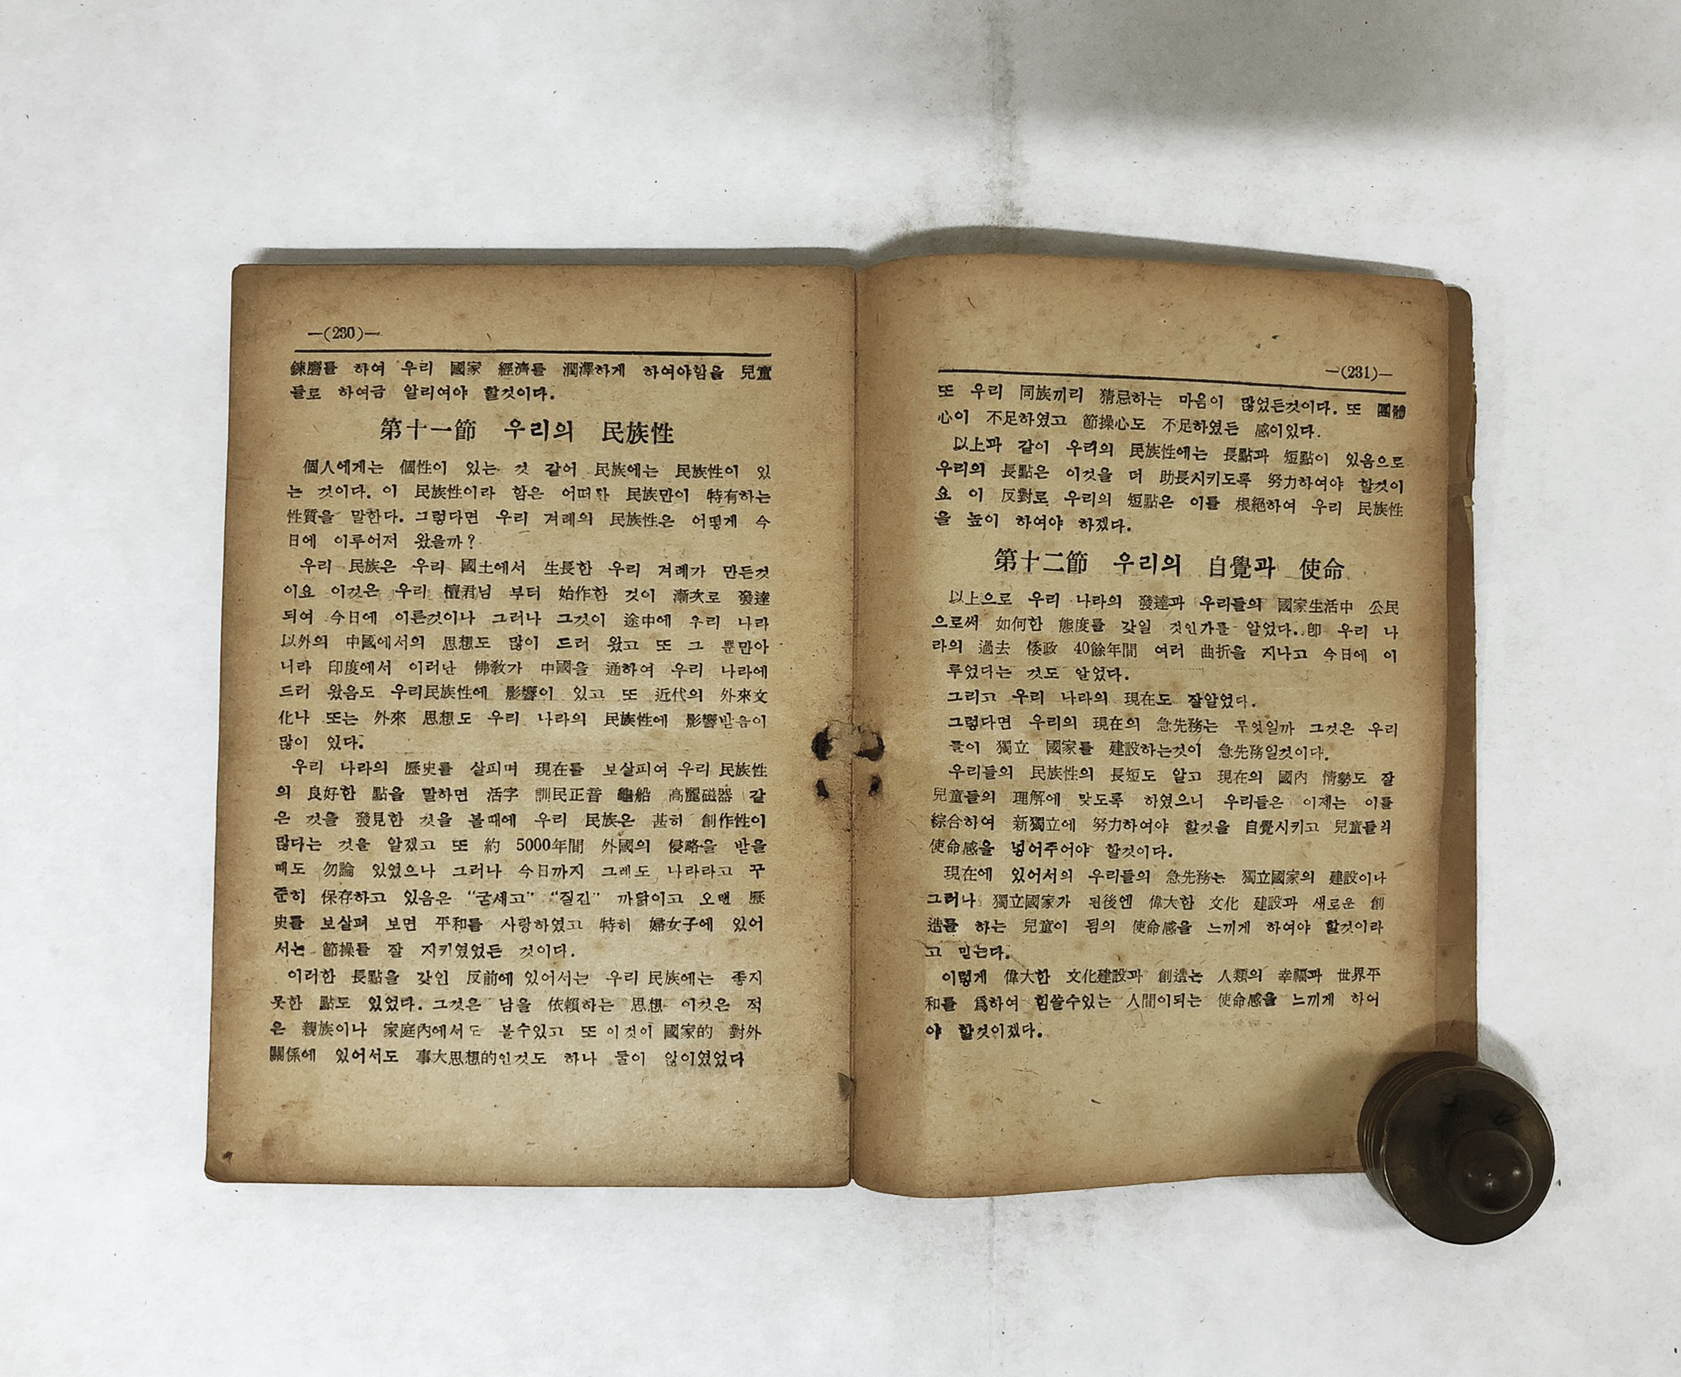 —(230)—
鍊磨를 하여 우리 國家 經濟를 潤澤하게 하여야함을 兒童
들로 하여금 알리여야 할것이다.
第十一節 우리의 民族性
個人에게는 個性이 있는 것 같어 民族에는 民族性이 있
는 것이다. 이 民族性이라 함은 어떠한 民族만이 特有하는
性質을 말한다. 그렇다면 우리 겨레의 民族性은 어떻게 今
日에 이루어저 왔을까?
우리 民族은 우리 國土에서 生長한 우리 겨레가 만든것
이요 이것은 우리 檀君님 부터 始作한 것이 漸次로 發達
되여 今日에 이른것이나 그러나 그것이 途中에 우리 나라
以外의 中國에서의 思想도 많이 드러 왔고 또 그 뿐만아
니라 印度에서 이러난 佛敎가 中國을 通하여 우리 나라에
드러 왔음도 우리民族性에 影響이 있고 또 近代의 外來文
化나 또는 外來 思想도 우리 나라의 民族性에 影響받음이
많이 있다.
우리 나라의 歷史를 살피며 現在를 보살피여 우리 民族性
의 良好한 點을 말하면 活字 訓民正音 龜船 高麗磁器 같
은 것을 發見한 것을 볼때에 우리 民族은 甚히 創作性이
많다는 것을 알겠고 또 約 5000年間 外國의 侵略을 받을
때도 勿論 있었으나 그러나 今日까지 그래도 나라라고 꾸
준히 保存하고 있음은 “굳세고” “질긴” 까닭이고 오랜 歷
史를 보살펴 보면 平和를 사랑하였고 特히 婦女子에 있어
서는 節操를 잘 지키였었든 것이다.
이러한 長點을 갖인 反前에 있어서는 우리 民族에는 좋지
못한 點도 있었다. 그것은 남을 依賴하는 思想 이것은 적
은 親族이나 家庭內에서도 볼수있고 또 이것이 國家的 對外
關係에 있어서도 事大思想的인것도 하나 둘이 않이였었다
—(231)—
또 우리 同族끼리 猜忌하는 마음이 많었든것이다. 또 團體
心이 不足하였고 節操心도 不足하였든 感이있다.
以上과 같이 우리의 民族性에는 長點과 短點이 있음으로
우리의 長點은 이것을 더 助長시키도록 努力하여야 할것이
요 이 反對로 우리의 短點은 이를 根絶하여 우리 民族性
을 높이 하여야 하겠다.
第十二節 우리의 自覺과 使命
以上으로 우리 나라의 發達과 우리들의 國家生活中 公民
으로써 如何한 態度를 갖일 것인가를 알었다. 卽 우리 나
라의 過去 倭政 40餘年間 여러 曲折을 지나고 今日에 이
루었다는 것도 알었다.
그리고 우리 나라의 現在도 잘알었다.
그렇다면 우리의 現在의 急先務는 무엇일까 그것은 우리
들이 獨立 國家를 建設하는것이 急先務일것이다.
우리들의 民族性의 長短도 알고 現在의 國內 情勢도 잘
兒童들의 理解에 맞도록 하였으니 우리들은 이제는 이를
綜合하여 新獨立에 努力하여야 할것을 自覺시키고 兒童들의
使命感을 넣어주어야 할것이다.
現在에 있어서의 우리들의 急先務는 獨立國家의 建設이나
그러나 獨立國家가 된後엔 偉大한 文化 建設과 새로운 創
造를 하는 兒童이 됨의 使命感을 느끼게 하여야 할것이라
고 믿는다.
이렇게 偉大한 文化建設과 創造는 人類의 幸福과 世界平
和를 爲하여 힘쓸수있는 人間이되는 使命感을 느끼게 하여
야 할것이겠다.